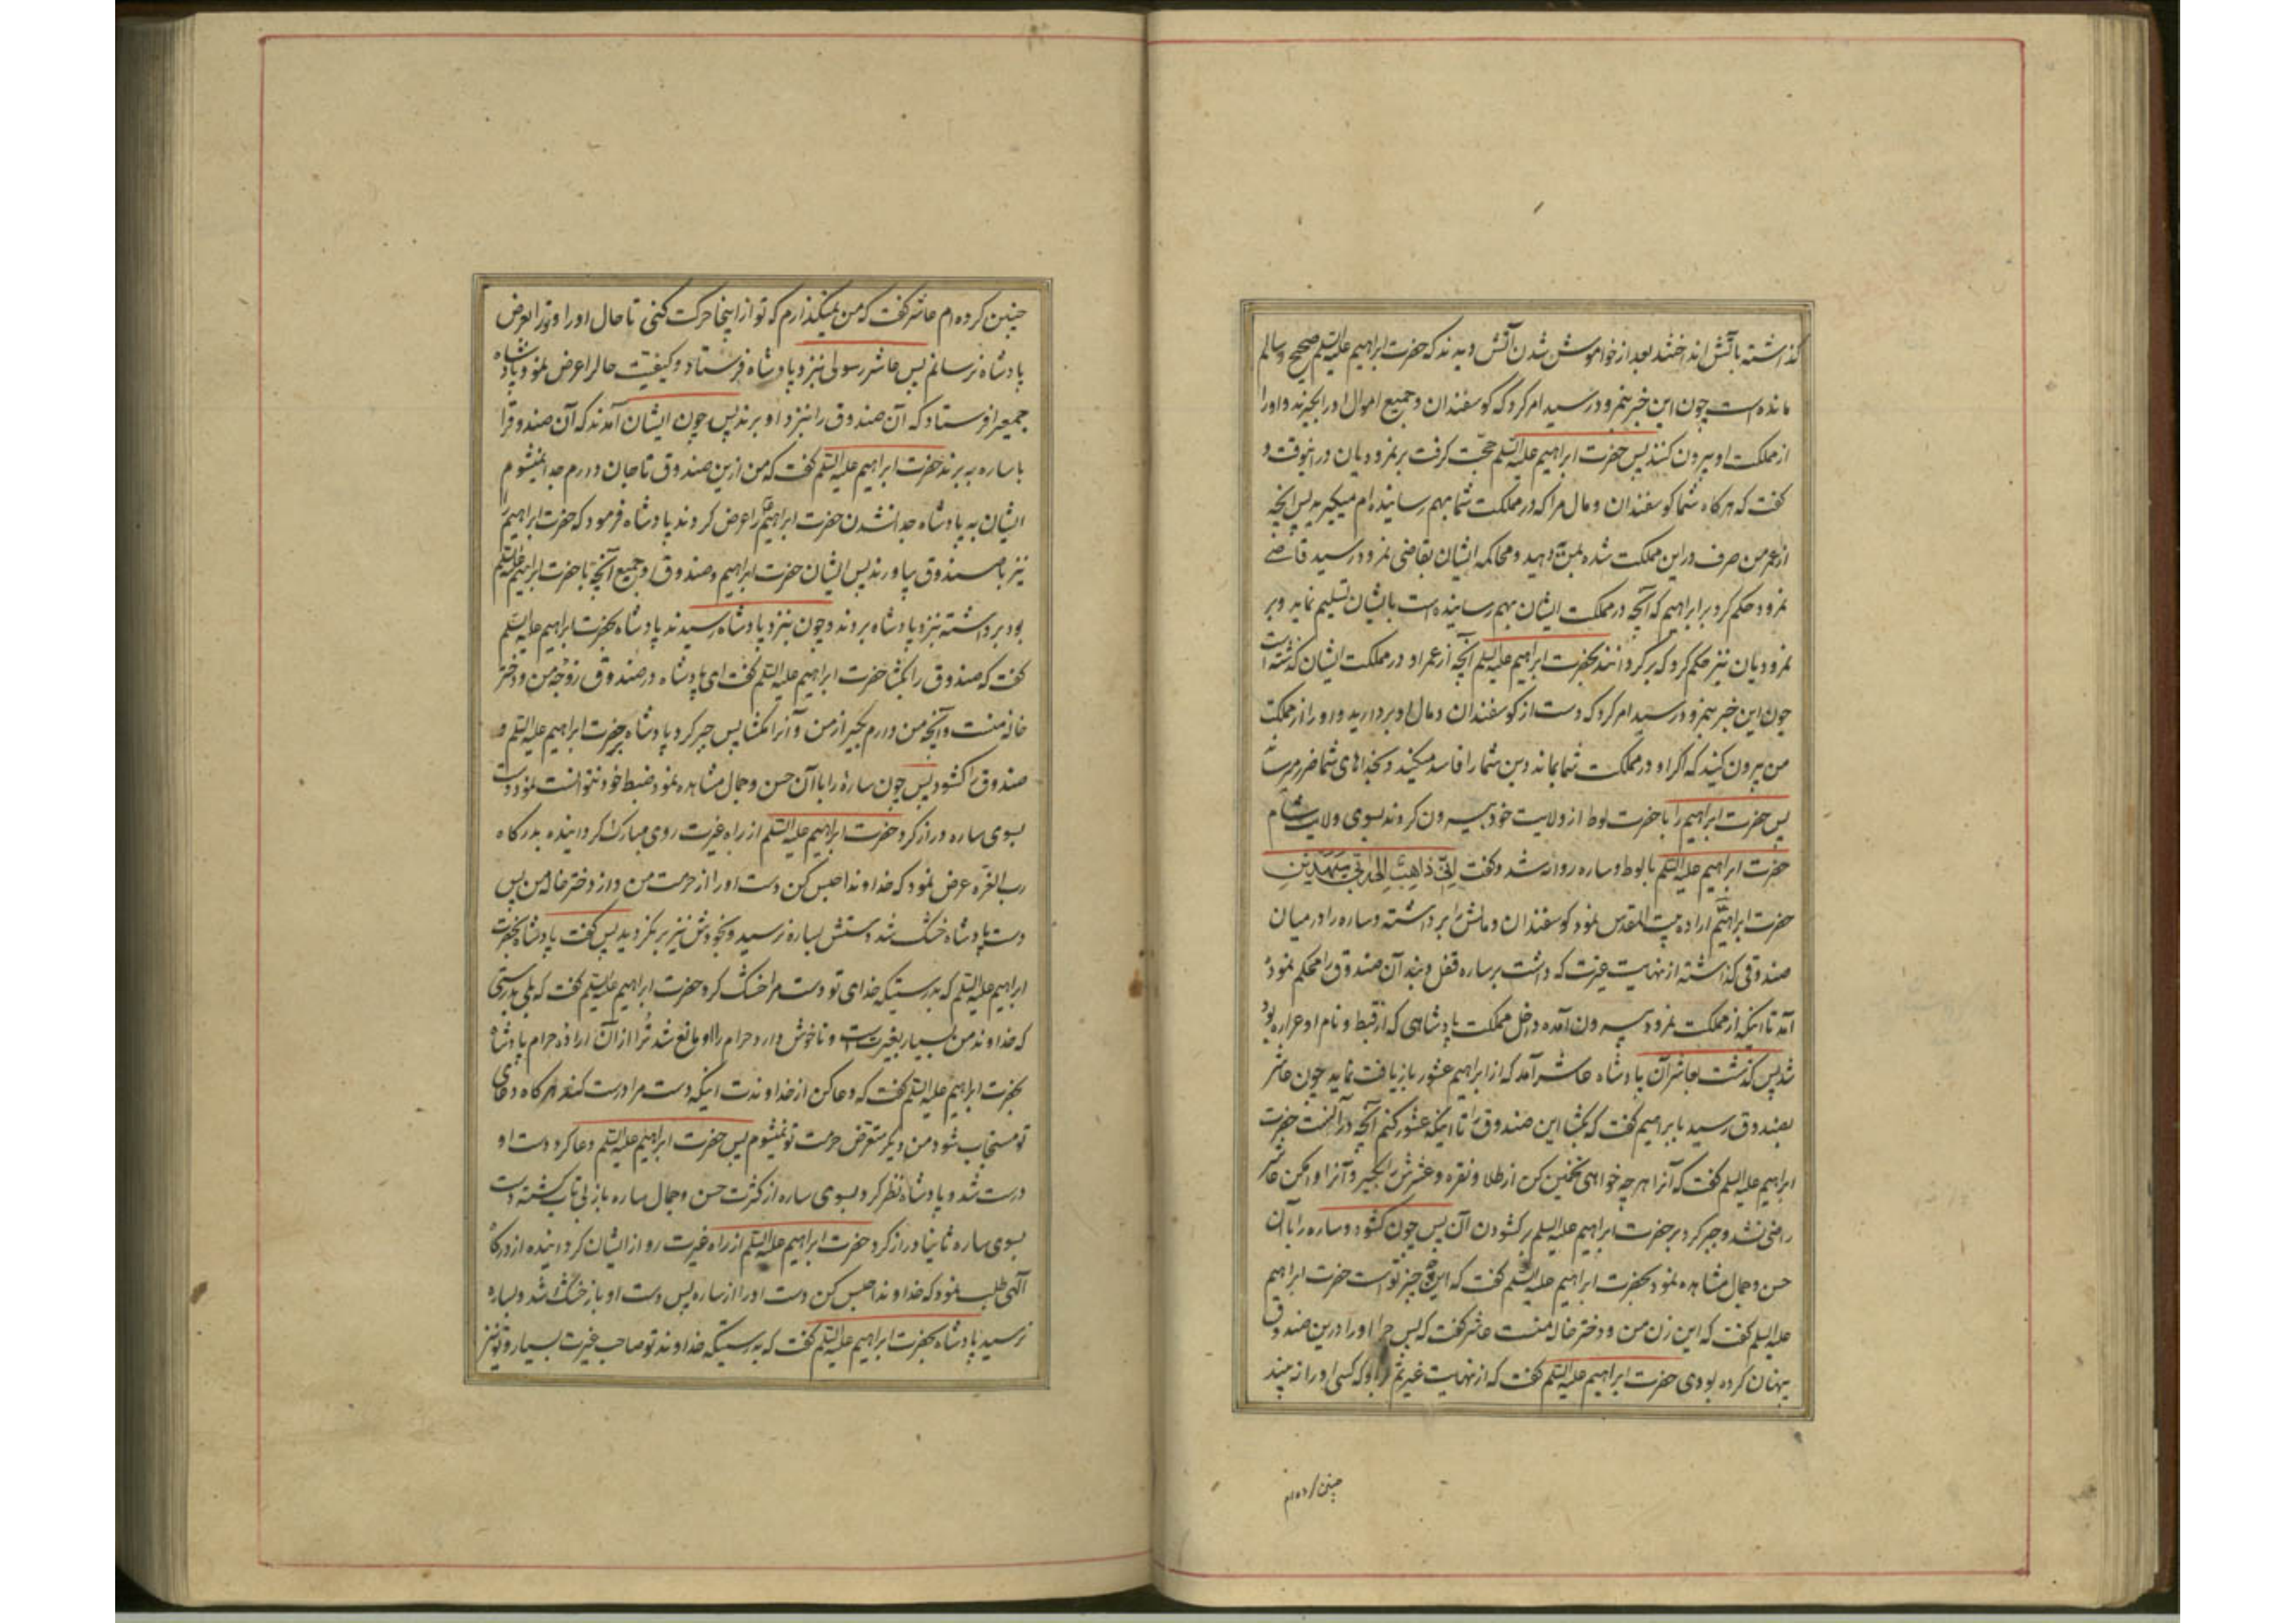 گذاشته بآتش انداختند بعد از خواموش شدن آتش دیدند که حضرت ابراهیم علیه السلم صحیح و سالم
مانده است چون این خبر بنمرود رسید امر کرد که کوسفندان و جمیع اموال اورا بگیرند و اورا
از مملکت او بیرون کنند پس حضرت ابراهیم علیه السلم حجّت کرفت بر نمرودیان در آنوقت و
کفت که هرکاه شما کوسفندان و مال مرا که در مملکت شما بهم رسانیده ام میکیرید پس آنچه
از عمر من صرف در این مملکت شده بمن دهید و محاکمه ایشان بقاضی نمرود رسید قاضی
نمرود حکم کرد بر ابراهیم که آنچه در مملکت ایشان بهم رسانیده است بایشان تسلیم نماید و بر
نمرودیان نیز حکم کرد که برکردانند بحضرت ابراهیم علیه السلم آنچه از عمر او در مملکت ایشان کذشته است
چون این خبر بنمرود رسید امر کرد که دست از کوسفندان و مال او بردارید و او را از مملکت
من بیرون کنید که اکر او در مملکت شما بماند دین شما را فاسد میکند و بخداهای شما ضرر میرساند
پس حضرت ابراهیم را با حضرت لوط از ولایت خود بیرون کردند بسوی ولایت شام
حضرت ابراهیم علیه السلم با لوط و ساره روانه شد و کفت اِنّی ذاهِبٌ اِلی رَبّی سَیَهْدینِ
حضرت ابراهیم اراده بیت المقدس نمود کوسفندان و مالش را برداشته و ساره را در میان
صندوقی کذاشته از نهایت غیرت که داشت بر ساره قفل و بند آن صندوق را محکم نمود
آمد تا اینکه از مملکت نمرود بیرون آمده داخل مملکت پادشاهی که از قبط و نام او عراره بود
شد پس کذشت بعاشر آن پادشاه عاشر آمد که از ابراهیم عشور بازیافت نماید چون عاشر
بصندوق رسید بابراهیم کفت که بکشا این صندوق را تا اینکه عشور کنم آنچه در آنست حضرت
ابراهیم علیه السلم کفت که آنرا هرچه خواهی تخمین کن از طلا و نقره و عشرش را بکیر و آنرا وا مکن عاشر
راضی نشد و جبر کرد بر حضرت ابراهیم علیه السلم بر کشودن آن پس چون کشود و ساره را با آن
حسن و جمال مشاهده نمود بحضرت ابراهیم علیه السلم کفت که این چه چیز تواست حضرت ابراهیم
علیه السلم کفت که این زن من و دختر خاله منست عاشر کفت که پس چرا او را درین صندوق
پنهان کرده بودی حضرت ابراهیم علیه السلم کفت که از نهایت غیرتم بر او که کسی او را نه بیند
چنین کرده ام
چنین کرده ام عاشر کفت که من نمیکذارم که تو از اینجا حرکت کنی تا حال او را و تو را بعرض
پادشاه نرسانم پس عاشر رسولی بنزد پادشاه فرستاد و کیفیت حال را عرض نمود پادشاه
جمعیرا فرستاد که آن صندوق را بنزد او برند پس چون ایشان آمدند که آن صندوقرا
با ساره به برند حضرت ابراهیم علیه السلم کفت که من ازین صندوق تا جان دارم جدا نمیشوم
ایشان به پادشاه جدا نشدن حضرت ابراهیم را عرض کردند پادشاه فرمود که حضرت ابراهیم را
نیز با صندوق بیاورند پس ایشان حضرت ابراهیم و صندوق و جمیع آنچه با حضرت ابراهیم علیه السلم
بود برداشته بنزد پادشاه بردند و چون بنزد پادشاه رسیدند پادشاه بحضرت ابراهیم علیه السلم
کفت که صندوق را بکشا حضرت ابراهیم علیه السلم کفت ای پادشاه در صندوق زوجه من و دختر
خاله منست و آنچه من دارم بکیر از من و آنرا مکشا پس جبر کرد پادشاه بحضرت ابراهیم علیه السلم و
صندوق را کشود پس چون ساره را با آن حسن و جمال مشاهده نمود ضبط خود نتوانست نمود دست
بسوی ساره دراز کرد حضرت ابراهیم علیه السلم از راه غیرت روی مبارک را کردانیده بدرکاه
رب العزه عرض نمود که خداوندا حبس کن دست او را از حرمت من و از دختر خاله من پس
دست پادشاه خشک شد و دستش بساره نرسید و بخودش نیز برنکردید پس کفت پادشاه بحضرت
ابراهیم علیه السلم که بدرستیکه خدای تو دست مرا خشک کرد حضرت ابراهیم علیه السلم کفت که بلی بدرستی
که خداوند من بسیار بغیرتست و ناخوش دارد حرام را و او مانع شد تُرا از آن اراده حرام پادشاه
بحضرت ابراهیم علیه السلم کفت که دعا کن از خداوندت اینکه دست مرا درست کند هرکاه دعای
تو مستجاب شود من دیکر متعرض حرمت تو نمیشوم پس حضرت ابراهیم علیه السلم دعا کرد دست او
درست شد و پادشاه نظر کرد بسوی ساره از کثرت حسن و جمال ساره باز بی تاب کشته دست
بسوی ساره ثانیا دراز کرد حضرت ابراهیم علیه السلم از راه غیرت رو از ایشان کردانیده از درکاه
الهی طلب نمود که خداوندا حبس کن دست او را از ساره پس دست او باز خشک شد و بساره
نرسید پادشاه بحضرت ابراهیم علیه السلم کفت که بدرستیکه خداوند تو صاحب غیرت بسیار و تو نیز